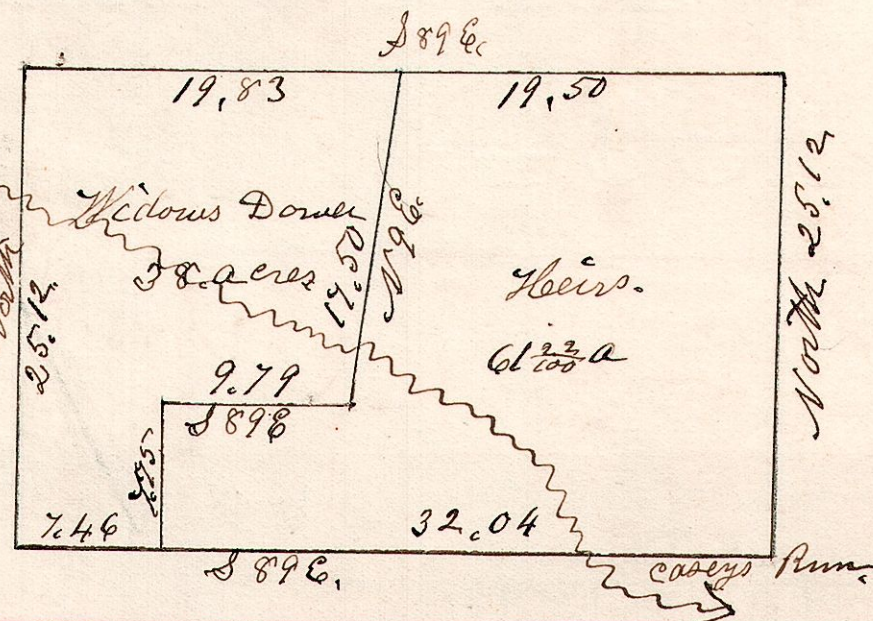 S 89 E.
19.83
19.50
Widows Dower
38. acres
17.50
N 9 E.
Heirs.
61 22/100 a
North 25.12
North
25.12
9.79
S 89 E
7.75
7.46
32.04
S 89 E.
Caseys Run.